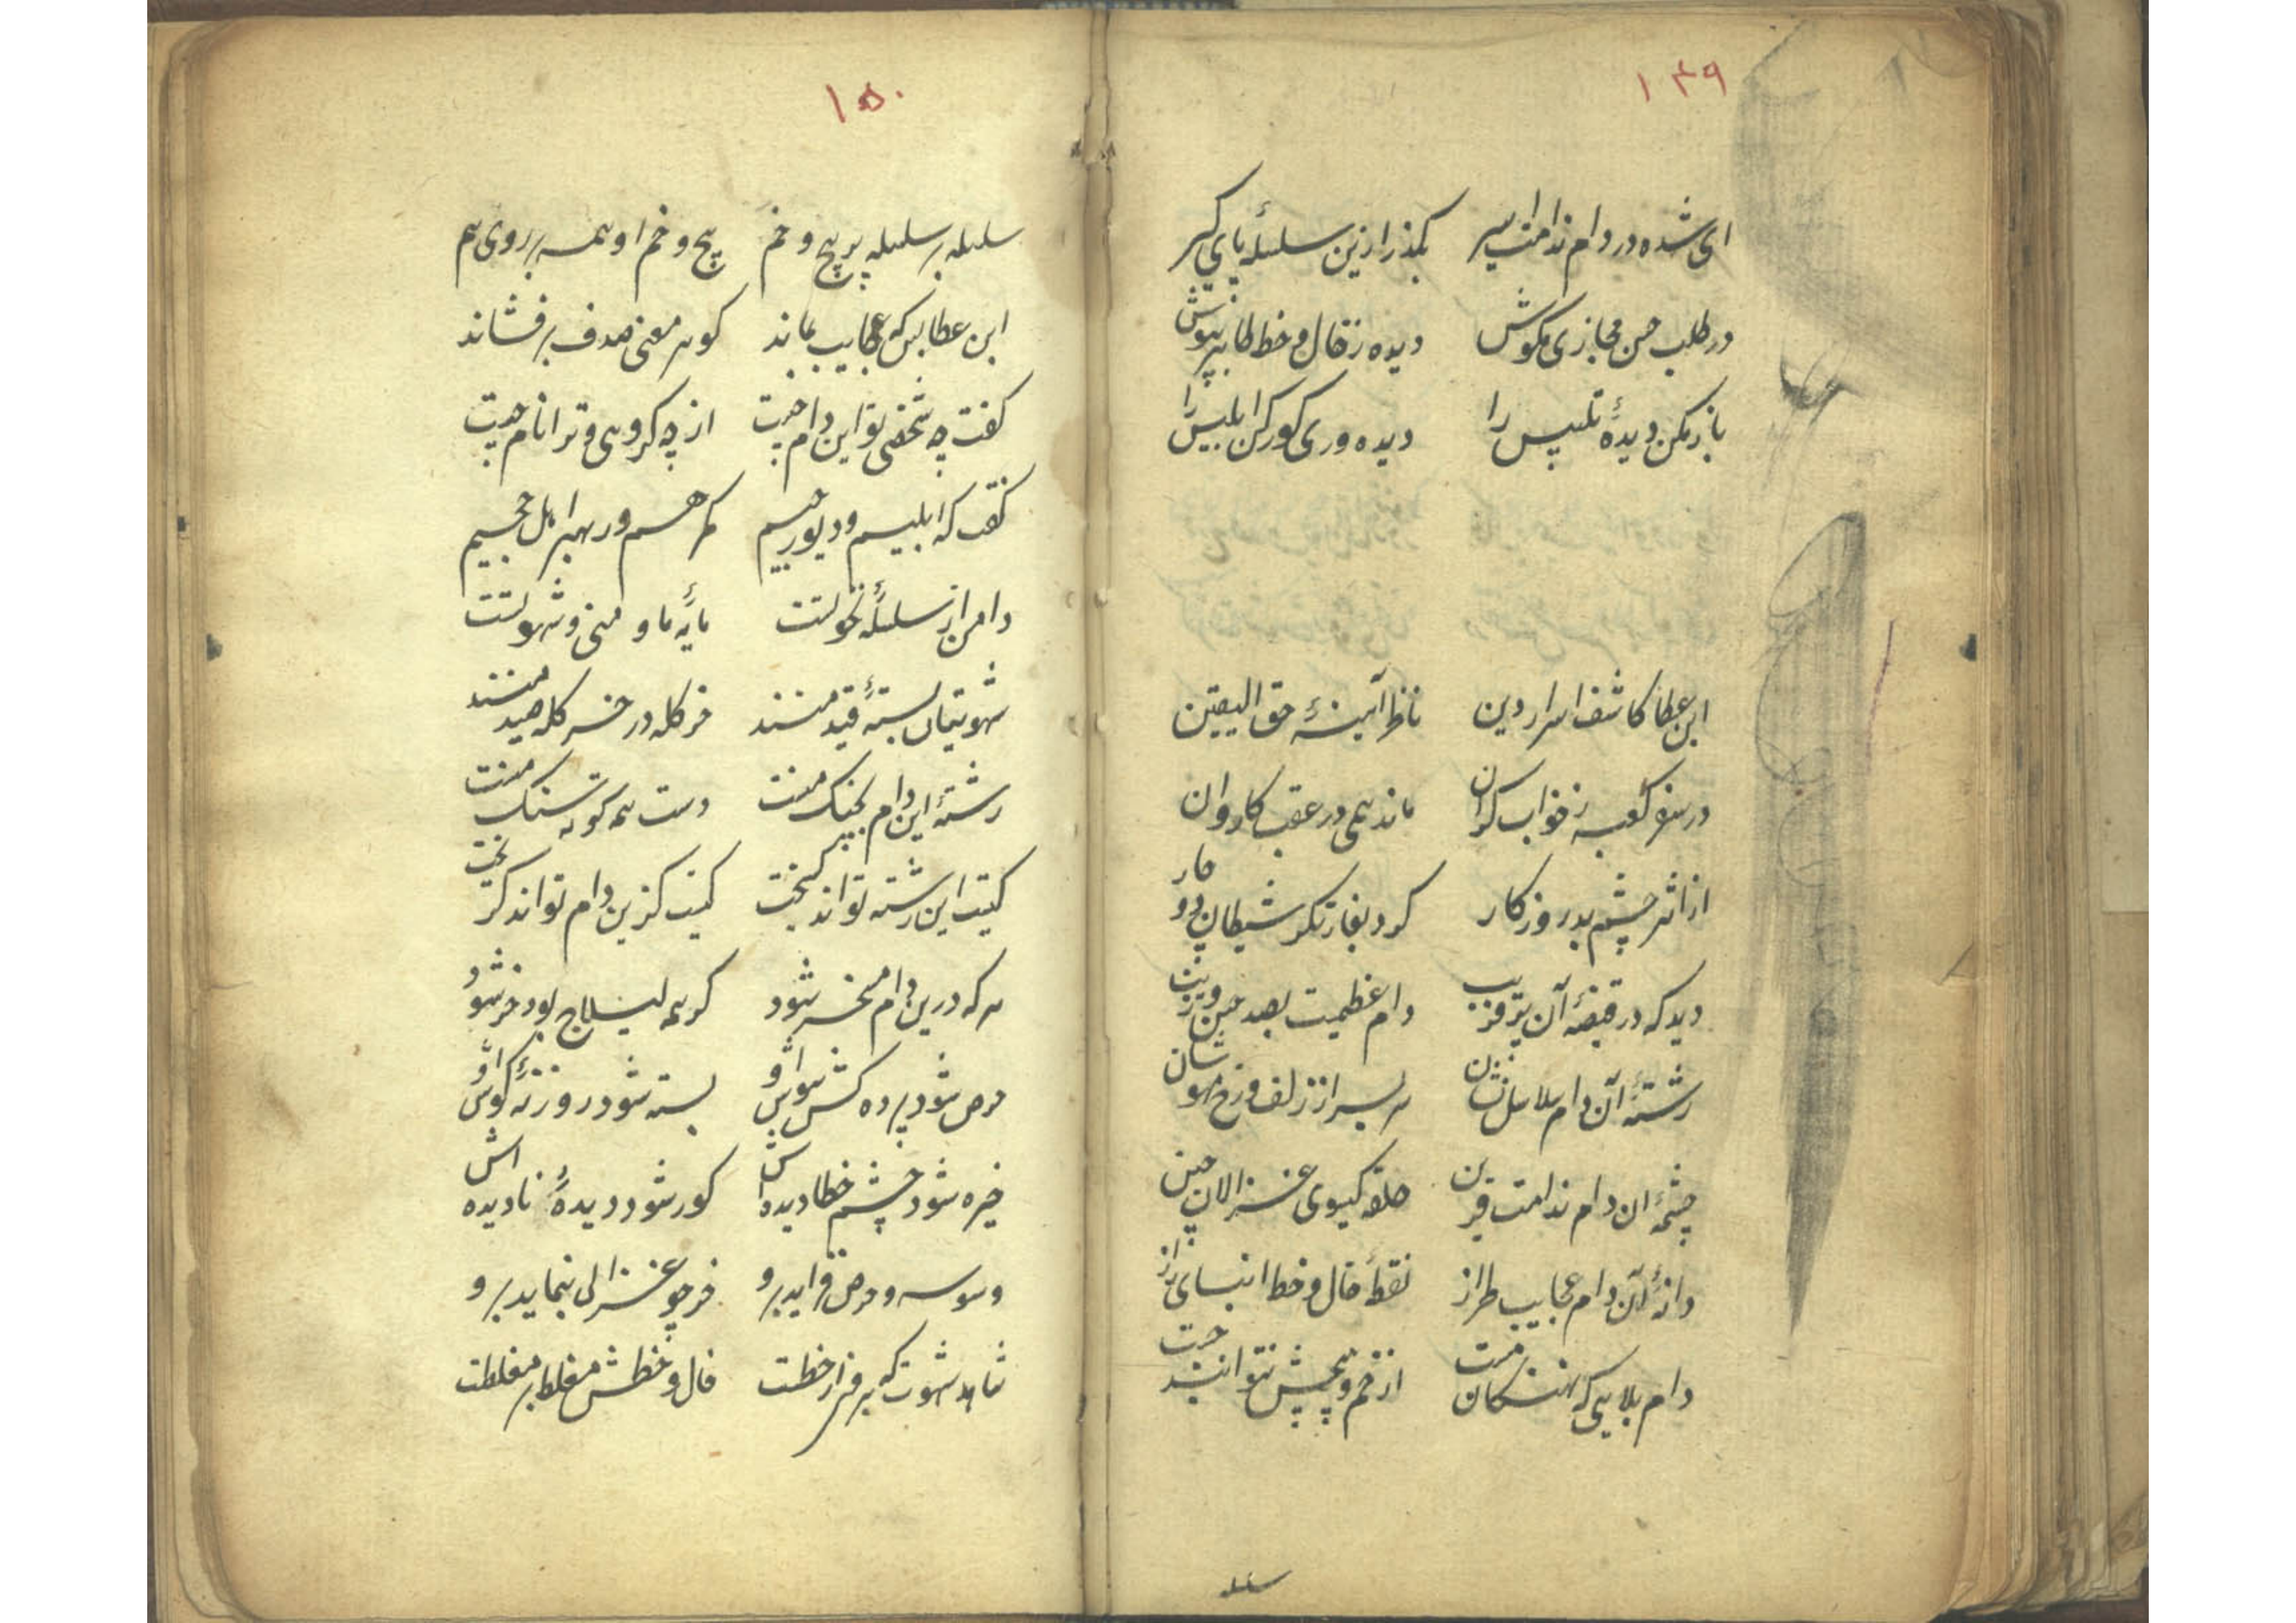 ۱۴۹
ای شده در دام ندامت اسیر بگذر ازین سلسلهٔ پای گیر
در طلب حسن مجازی مکوش دیده ز خال و خط ظاهر بپوش
باز مکن دیدهٔ تلبیس را دیده وری کور کن ابلیس را
ابن عطا کاشف اسرار دین ناظر آیینهٔ حق الیقین
در سفر کعبه ز خواب گران ماند همی در عقب کاروان
از اثر چشم بد روزگار کرد بغارتگر شیطان دوچار
دید که در قبضهٔ آن پر فریب دام عظیمست بصد زین و زیب
رشتهٔ آن دام سلاسل نشان سر بسر از زلف و رخ مهوشان
چشمهٔ ان دام ندامت قرین حلقه کیسوی غزالان چین
دانهٔ آن دام عجایب طراز نقطهٔ خال و خط
دام بلایی که از خم و پیچش نتوانند جست
سلسله
۱۵۰
سلسله بر سلسله پر پیچ و خم پیچ و خم او همه بر روی هم
ابن عطا بس که عجایب بماند کوهر معنی ز صدف برفشاند
کفت چه شخصی تو و این دام چیست از چه کروهی و ترا نام چیست
کفت که ابلیسم و دیو رجیم کمرهم و رهبر اهل جحیم
دام من از سلسلهٔ مایهٔ ما و منی و شهوتست
شهوتیان بستهٔ قید منند خر کله در خر کله صید منند
رشتهٔ این دام بچنک منست دست همه کوته سنک منست
کیست این رشته تواند کسیخت کیست کزین دام تواند کریخت
هر که درین دام مسخر شود کر همه لیلاج بود خر شود
حرص شود پرده کش هوش او بسته شود روزنهٔ کوش او
خیره شود چشم خطا دیده اش کور شود دیدهٔ نادیده اش
وسوسه و حرص فزاید برو خر چو غزالی بنماید برو
شاهد شهوت که خال و خطش مغلطه بر مغلطست